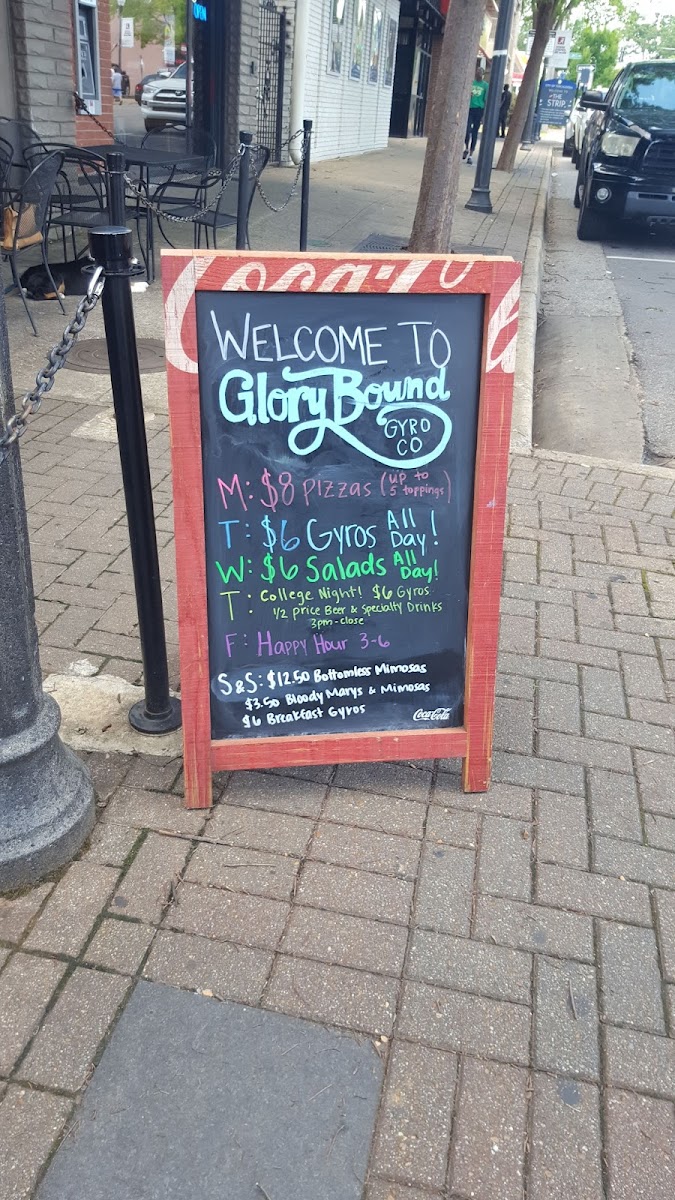 OPEN
THE
STRIP
Coca-Cola
WELCOME TO
Glory Bound
GYRO
CO
M: $8 Pizzas (up to
5 toppings)
T: $6 Gyros All
Day!
W: $6 Salads All
Day!
T: College Night! $6 Gyros
1/2 price Beer & Specialty Drinks
3pm-close
F: Happy Hour 3-6
S&S: $12.50 Bottomless Mimosas
$3.50 Bloody Marys & Mimosas
$6 Breakfast Gyros
Coca-Cola